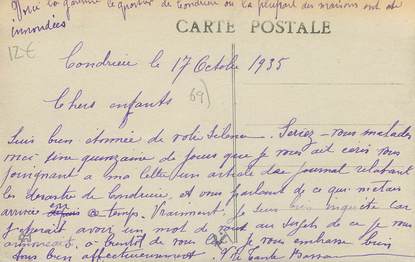 Voici la gauche le quartier de Condrieu ou la plupart des maisons ont été
innondées
CARTE POSTALE
12€
Condrieu le 17 Octobre 1935
69)
Chers enfants
Suis bien étonnée de votre silence. Seriez-vous malades
voici une quinzaine de jours que je vous ait ecris vous
joignant a ma lettre un article du journal relatant
les désastre de Condrieu, et vous parlant de ce qui m'etais
arrivée en ce temps. Vraiment je suis bien inquiète car
j'esperait avoir un mot de vous au sujet de ce que je vous
annoncais, a bientôt de vous lire je vous embrasse bien
tous bien affectueusement Tante